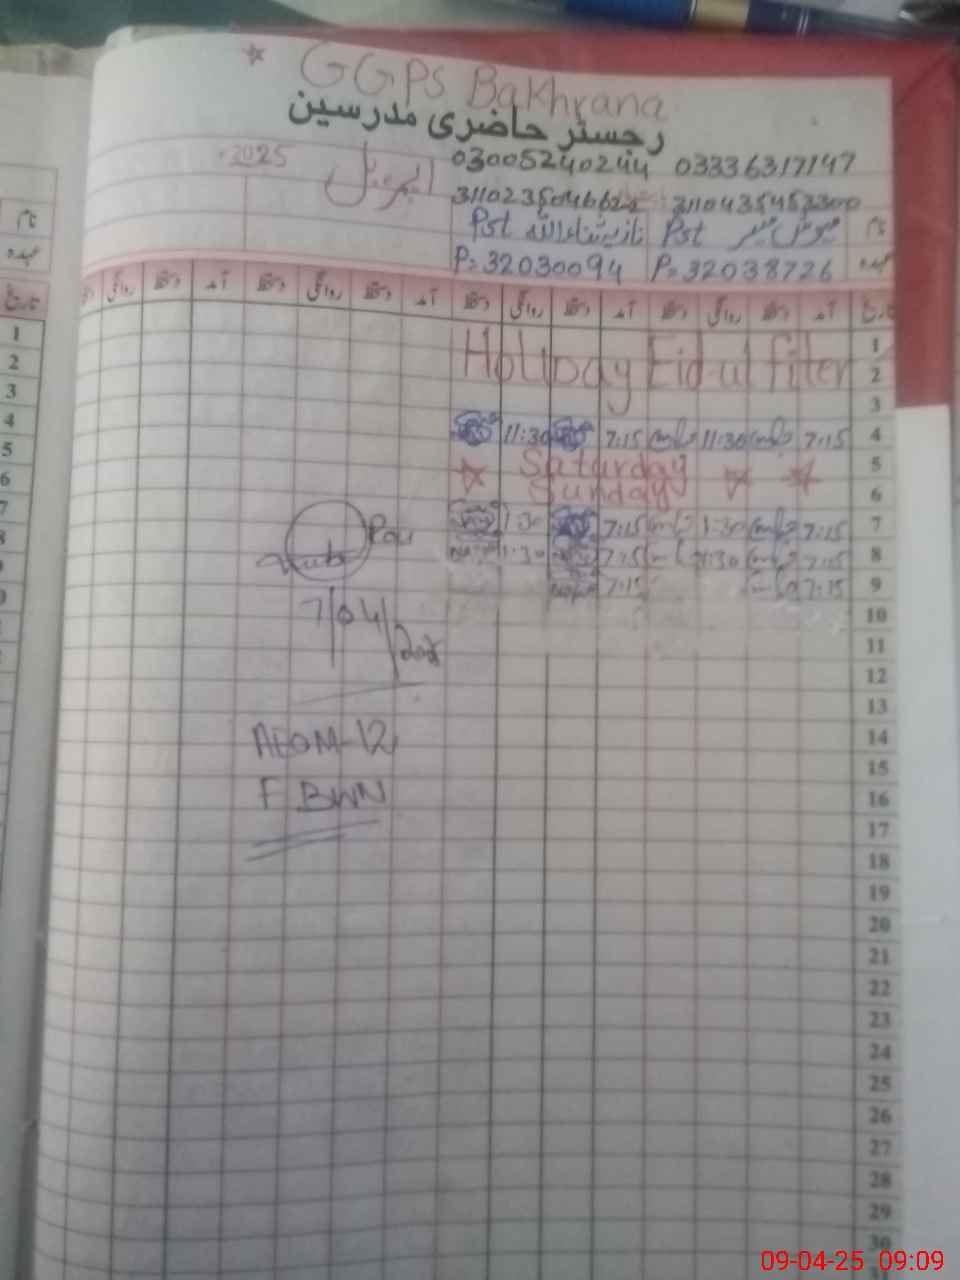 * GGPS Bakhrana
رجسٹر حاضری مدرسین
2025 اپریل 03005240244 03336317147
Pst نازیہ ثناءاللہ Pst نام
P=32030094 P=32038726 عہدہ
تاریخ آمد دستخط روانگی دستخط آمد دستخط روانگی دستخط آمد دستخط روانگی دستخط آمد دستخط روانگی
1
Holiday Eid-ul fiter
2
3
11:30 7:15 11:30 7:15 4
Saturday 5
Sunday 6
1:30 7:15 1:30 7:15 7
1:30 7:15 1:30 7:15 8
7:15 7:15 9
10
7/04/2025
11
12
13
AEOM-12 14
15
F.BWN 16
17
18
19
20
21
22
23
24
25
26
27
28
29
30
نام
عہدہ
تاریخ
1
2
3
4
5
6
7
8
9
09-04-25 09:09